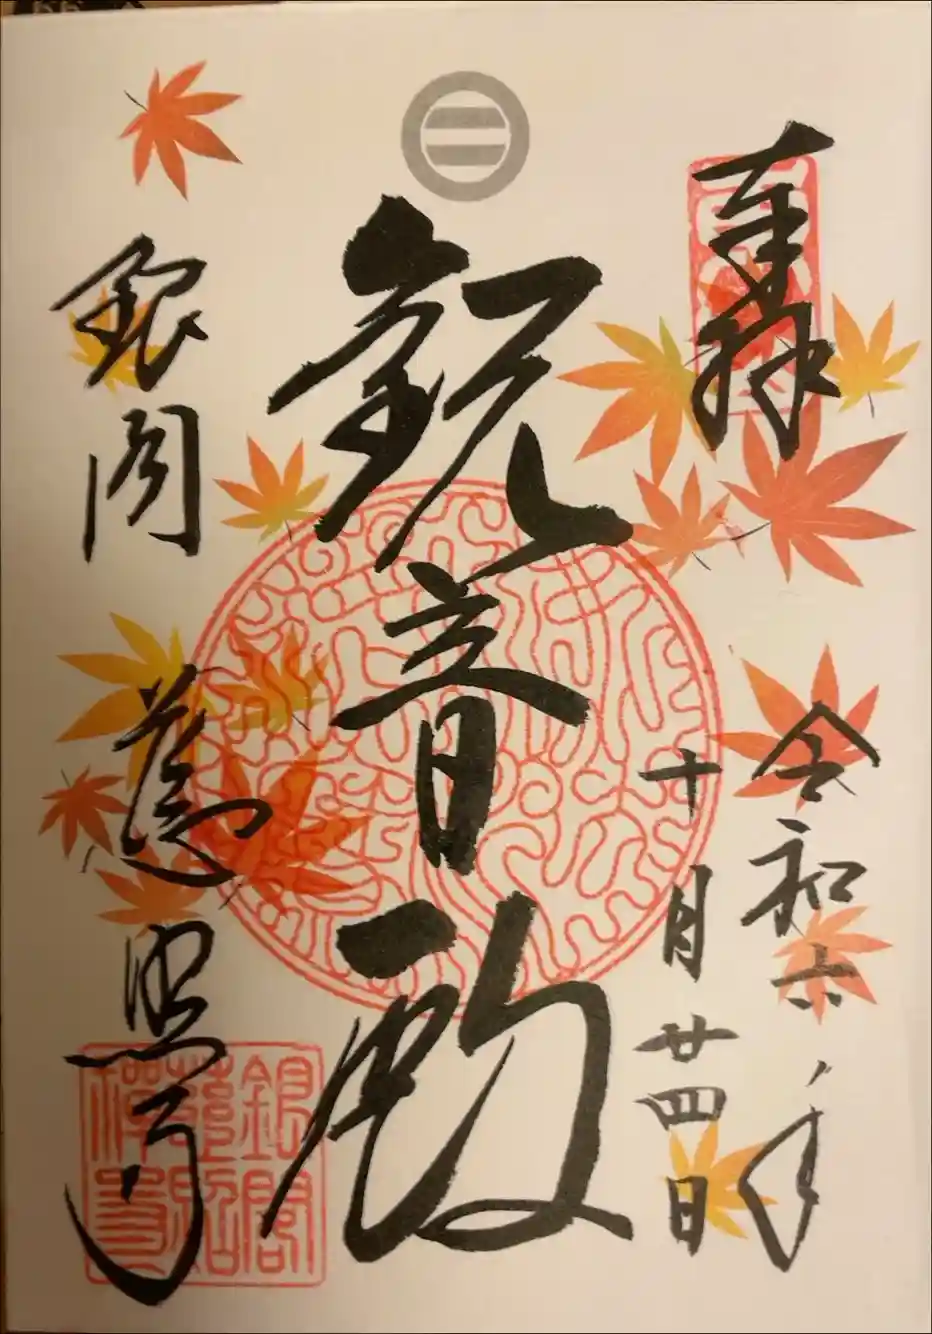 奉拝
令和六年
十月廿四日
観音殿
銀閣
慈照寺
銀閣
慈照
禅寺